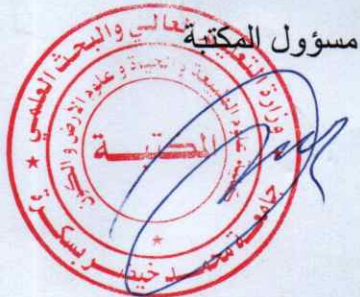 مسؤول المكتبة
وزارة التعليم العالي والبحث العلمي
علوم الطبيعة و الحياة و علوم الأرض و الكون
المكتبة
جامعة محمد خيضر بسكرة